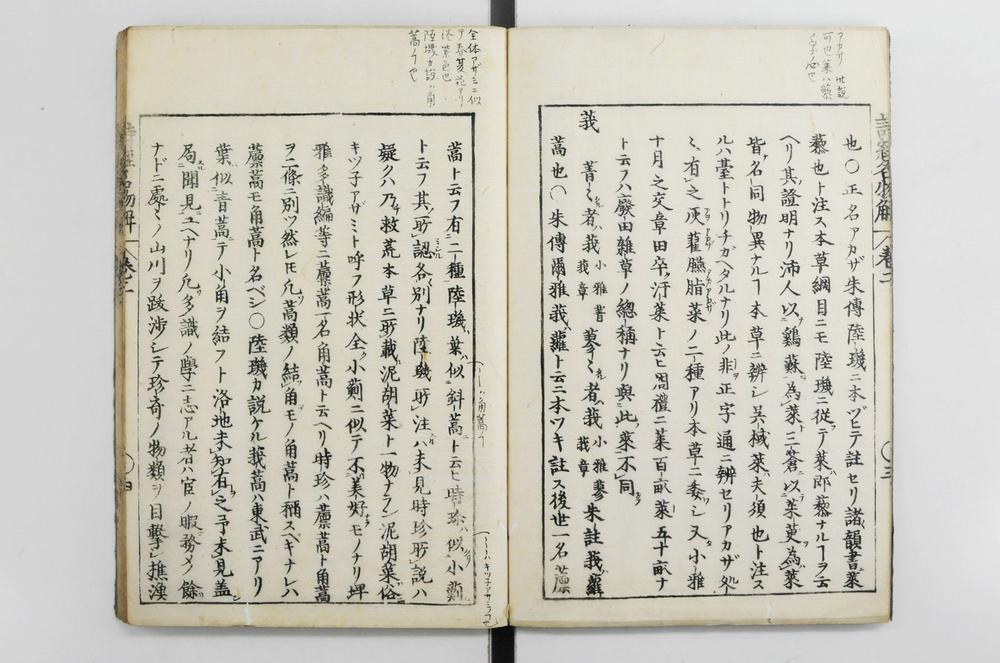 也〇正名アカザ朱傳陸璣ニ本ヅヒテ註セリ諸韻書萊
藜也ト注ス本草綱目ニモ陸璣ニ從テ萊ハ即藜ナルヿヲ云
ヘリ其證明ナリ沛人以雞蘇為萊三蒼以茱萸為萊
皆名同物異ナルヿ本草ニ辨シ吳棫萊夫須也ト注ス
ルハ臺トトリチガヘタルナリ此ノ非正字通ニ辨セリアカザ処
ミ有之灰藋臙脂菜ノ二種アリ本草ニ委シ又小雅
十月之交章田卒汙萊ト云ヒ周禮ニ萊百畝萊五十畝ナ
ト云フハ廢田雜草ノ總稱ナリ與此萊不同
莪
菁〻者莪 小雅菁莪章 蓼〻者莪 小雅蓼莪章 朱註莪蘿
蒿也〇朱傳爾雅莪蘿ト云ニ本ツキ註ス後世一名藨
蒿ト云フ有二種陸璣葉似斜蒿ト云ヒ時珍似小薊
ト云フ其所認各別ナリ陸璣所注ハ未見時珍所説ハ
疑クハ乃救荒本草ニ所載泥胡菜ト一物ナラン泥胡菜俗
キツ子アザミト呼フ形状全小薊ニ似テ不美好モノナリ埤
雅多識編等ニ藨蒿一名角蒿ト云ヘリ時珍ハ藨蒿ト角蒿
ヲ二條ニ別ツ然レモ凢蒿類ノ結角モノ角蒿ト稱スベキナレハ
藨蒿モ角蒿ト名ベシ〇陸璣カ説ケル莪蒿ハ東武ニアリ
葉似青蒿テ小角ヲ結フト洛地未知有之予未見蓋
局聞見ユヘナリ凢多識ノ學ニ志アル者ハ官ノ暇務メノ餘
ナドニ處〻ノ山川ヲ跋渉シテ珍奇ノ物類ヲ目撃シ樵漁
アカザ 此説
可也萊ハ藜
全体アザミニ似
テ春夏花アリ
淡紫色也
陸璣カ説ハ角
蒿ナ也
詩經名物解
卷二
〇三
卷二
〇四